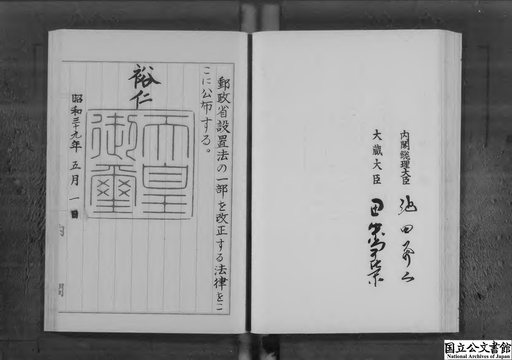 内閣総理大臣 池田勇人
大蔵大臣 田中角榮
郵政省設置法の一部を改正する法律をこ
こに公布する。
裕仁
天皇
御璽
昭和三十九年五月一日
内閣
国立公文書館
National Archives of Japan